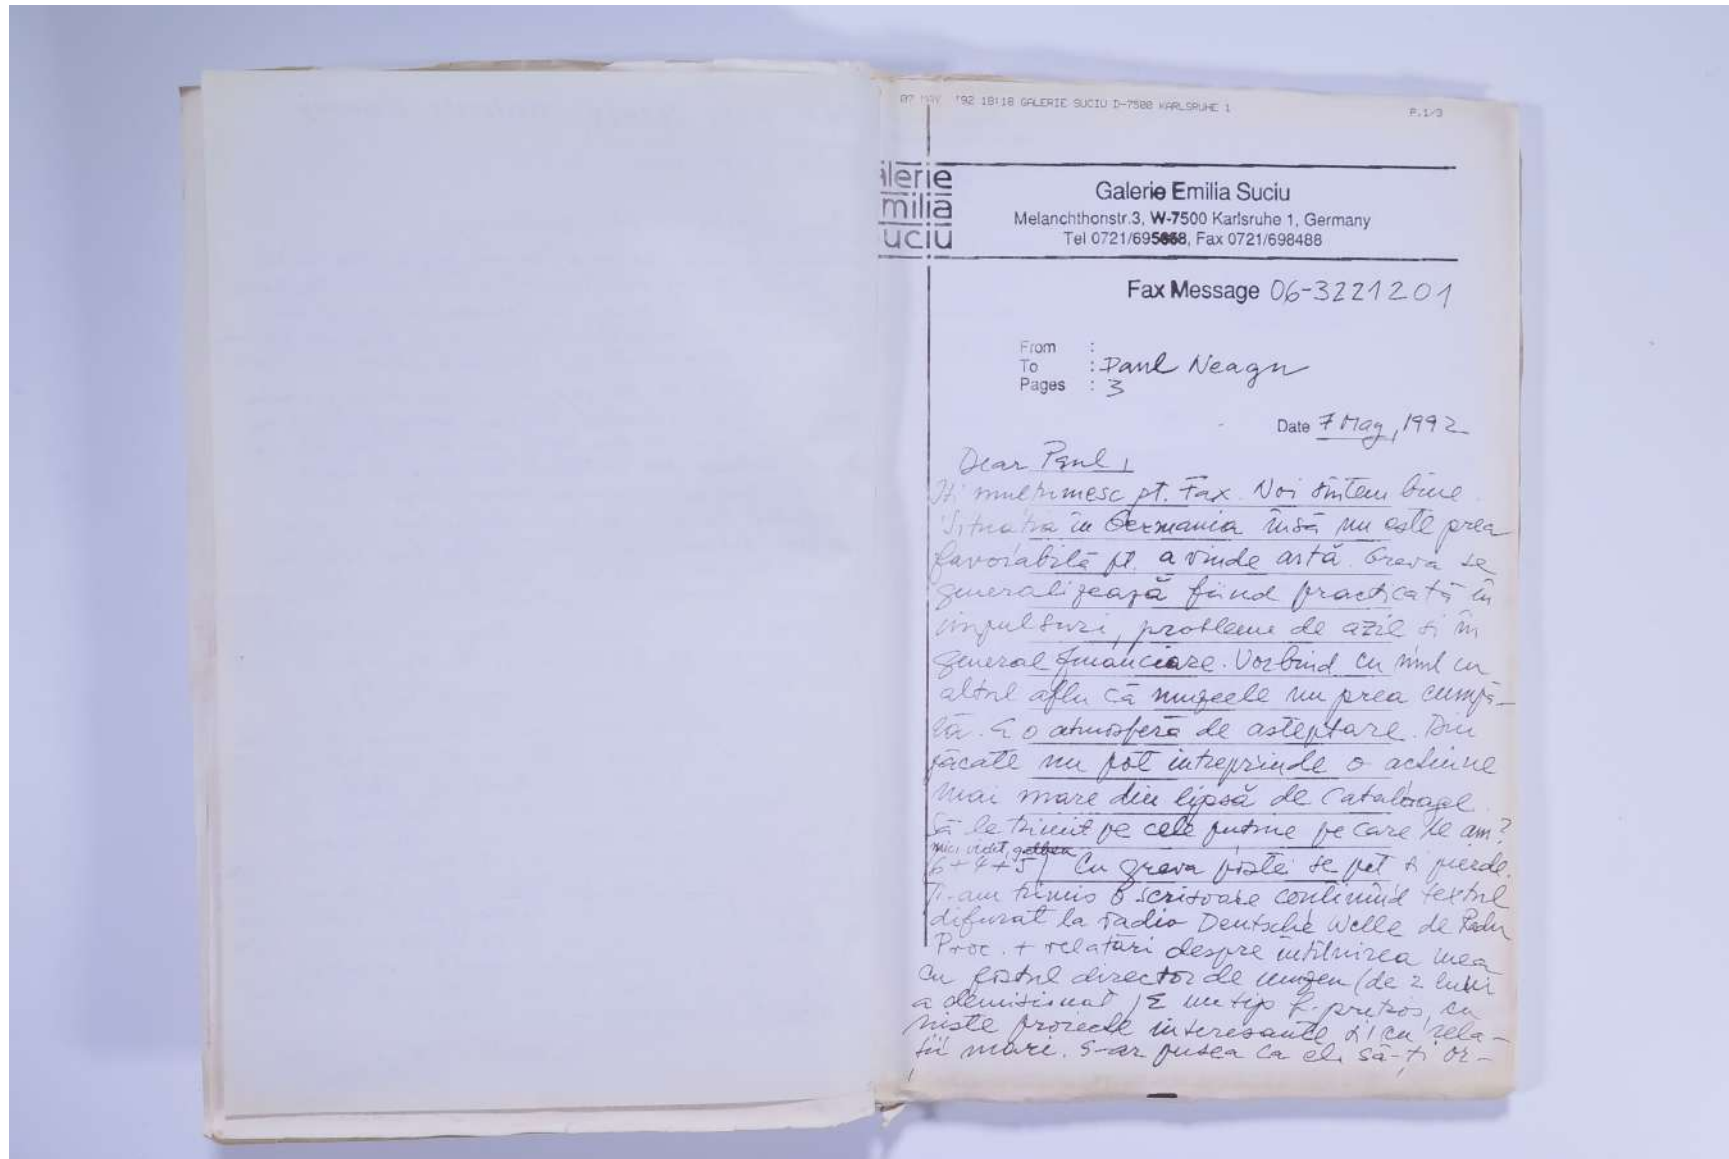 07 MAY '92 18:18 GALERIE SUCIU D-7500 KARLSRUHE 1
P.1/3
alerie
milia
uciu
Galerie Emilia Suciu
Melanchthonstr.3, W-7500 Karlsruhe 1, Germany
Tel 0721/695, Fax 0721/698488
Fax Message 06-3221201
From :
To : Paul Neagu
Pages : 3
Date 7 May, 1992
Dear Paul,
Iți mulțumesc pt. Fax. Noi sîntem bine.
Situația în Germania însă nu este prea
favorabilă pt. a vinde artă. Greva se
generalizează fiind practicată în
impulsuri, probleme de azil și în
general financiare. Vorbind cu unul cu
altul aflu că muzeele nu prea cumpă-
ră. E o atmosferă de așteptare. Din
păcate nu pot intreprinde o acțiune
mai mare din lipsă de cataloage.
Să le trimit pe cele puține pe care le am?
mici
6+4+5) Cu greva poștei se pot și pierde.
Ți-am trimis o scrisoare conținînd textul
difuzat la radio Deutsche Welle de Radu
Proc. + relatări despre întîlnirea mea
cu fostul director de muzeu (de 2 luni
a demisionat) E un tip f. prețios, cu
niște proiecte interesante și cu rela-
ții mari. S-ar putea ca el să-ți or-